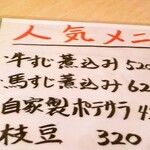 人気メニ
牛すじ煮込み 520
馬すじ煮込み 62
自家製ポテサラ 4
枝豆 320